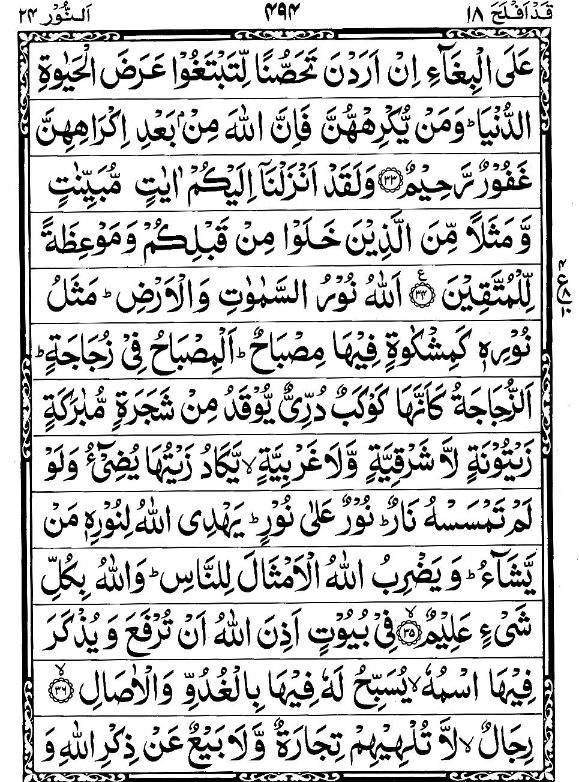 قَدْ اَفْلَحَ ۱۸ ۴۹۴ اَلنُّوْر ۲۴
عَلَى الْبِغَآءِ اِنْ اَرَدْنَ تَحَصُّنًا لِّتَبْتَغُوْا عَرَضَ الْحَيٰوةِ
الدُّنْيَا ؕ وَمَنْ يُّكْرِهْهُّنَّ فَاِنَّ اللّٰهَ مِنْۢ بَعْدِ اِكْرَاهِهِنَّ
غَفُوْرٌ رَّحِيْمٌ ﴿۳۳﴾ وَلَقَدْ اَنْزَلْنَاۤ اِلَيْكُمْ اٰيٰتٍ مُّبَيِّنٰتٍ
وَّمَثَلًا مِّنَ الَّذِيْنَ خَلَوْا مِنْ قَبْلِكُمْ وَمَوْعِظَةً
لِّلْمُتَّقِيْنَ ﴿۳۴﴾ ع اَللّٰهُ نُوْرُ السَّمٰوٰتِ وَالْاَرْضِ ؕ مَثَلُ
نُوْرِهٖ كَمِشْكٰوةٍ فِيْهَا مِصْبَاحٌ ؕ اَلْمِصْبَاحُ فِيْ زُجَاجَةٍ ؕ
اَلزُّجَاجَةُ كَاَنَّهَا كَوْكَبٌ دُرِّيٌّ يُّوْقَدُ مِنْ شَجَرَةٍ مُّبٰرَكَةٍ
زَيْتُوْنَةٍ لَّا شَرْقِيَّةٍ وَّلَا غَرْبِيَّةٍ ۙ يَّكَادُ زَيْتُهَا يُضِيْٓءُ وَلَوْ
لَمْ تَمْسَسْهُ نَارٌ ؕ نُوْرٌ عَلٰى نُوْرٍ ؕ يَهْدِى اللّٰهُ لِنُوْرِهٖ مَنْ
يَّشَآءُ ؕ وَيَضْرِبُ اللّٰهُ الْاَمْثَالَ لِلنَّاسِ ؕ وَاللّٰهُ بِكُلِّ
شَىْءٍ عَلِيْمٌ ﴿۳۵﴾ ۙ فِيْ بُيُوْتٍ اَذِنَ اللّٰهُ اَنْ تُرْفَعَ وَيُذْكَرَ
فِيْهَا اسْمُهٗ ۙ يُسَبِّحُ لَهٗ فِيْهَا بِالْغُدُوِّ وَالْاٰصَالِ ﴿۳۶﴾ ۙ
رِجَالٌ ۙ لَّا تُلْهِيْهِمْ تِجَارَةٌ وَّلَا بَيْعٌ عَنْ ذِكْرِ اللّٰهِ وَ